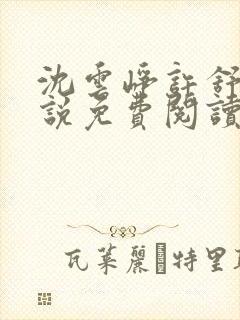 沈雲崢許舒
說免費閱讀
瓦萊麗 特里